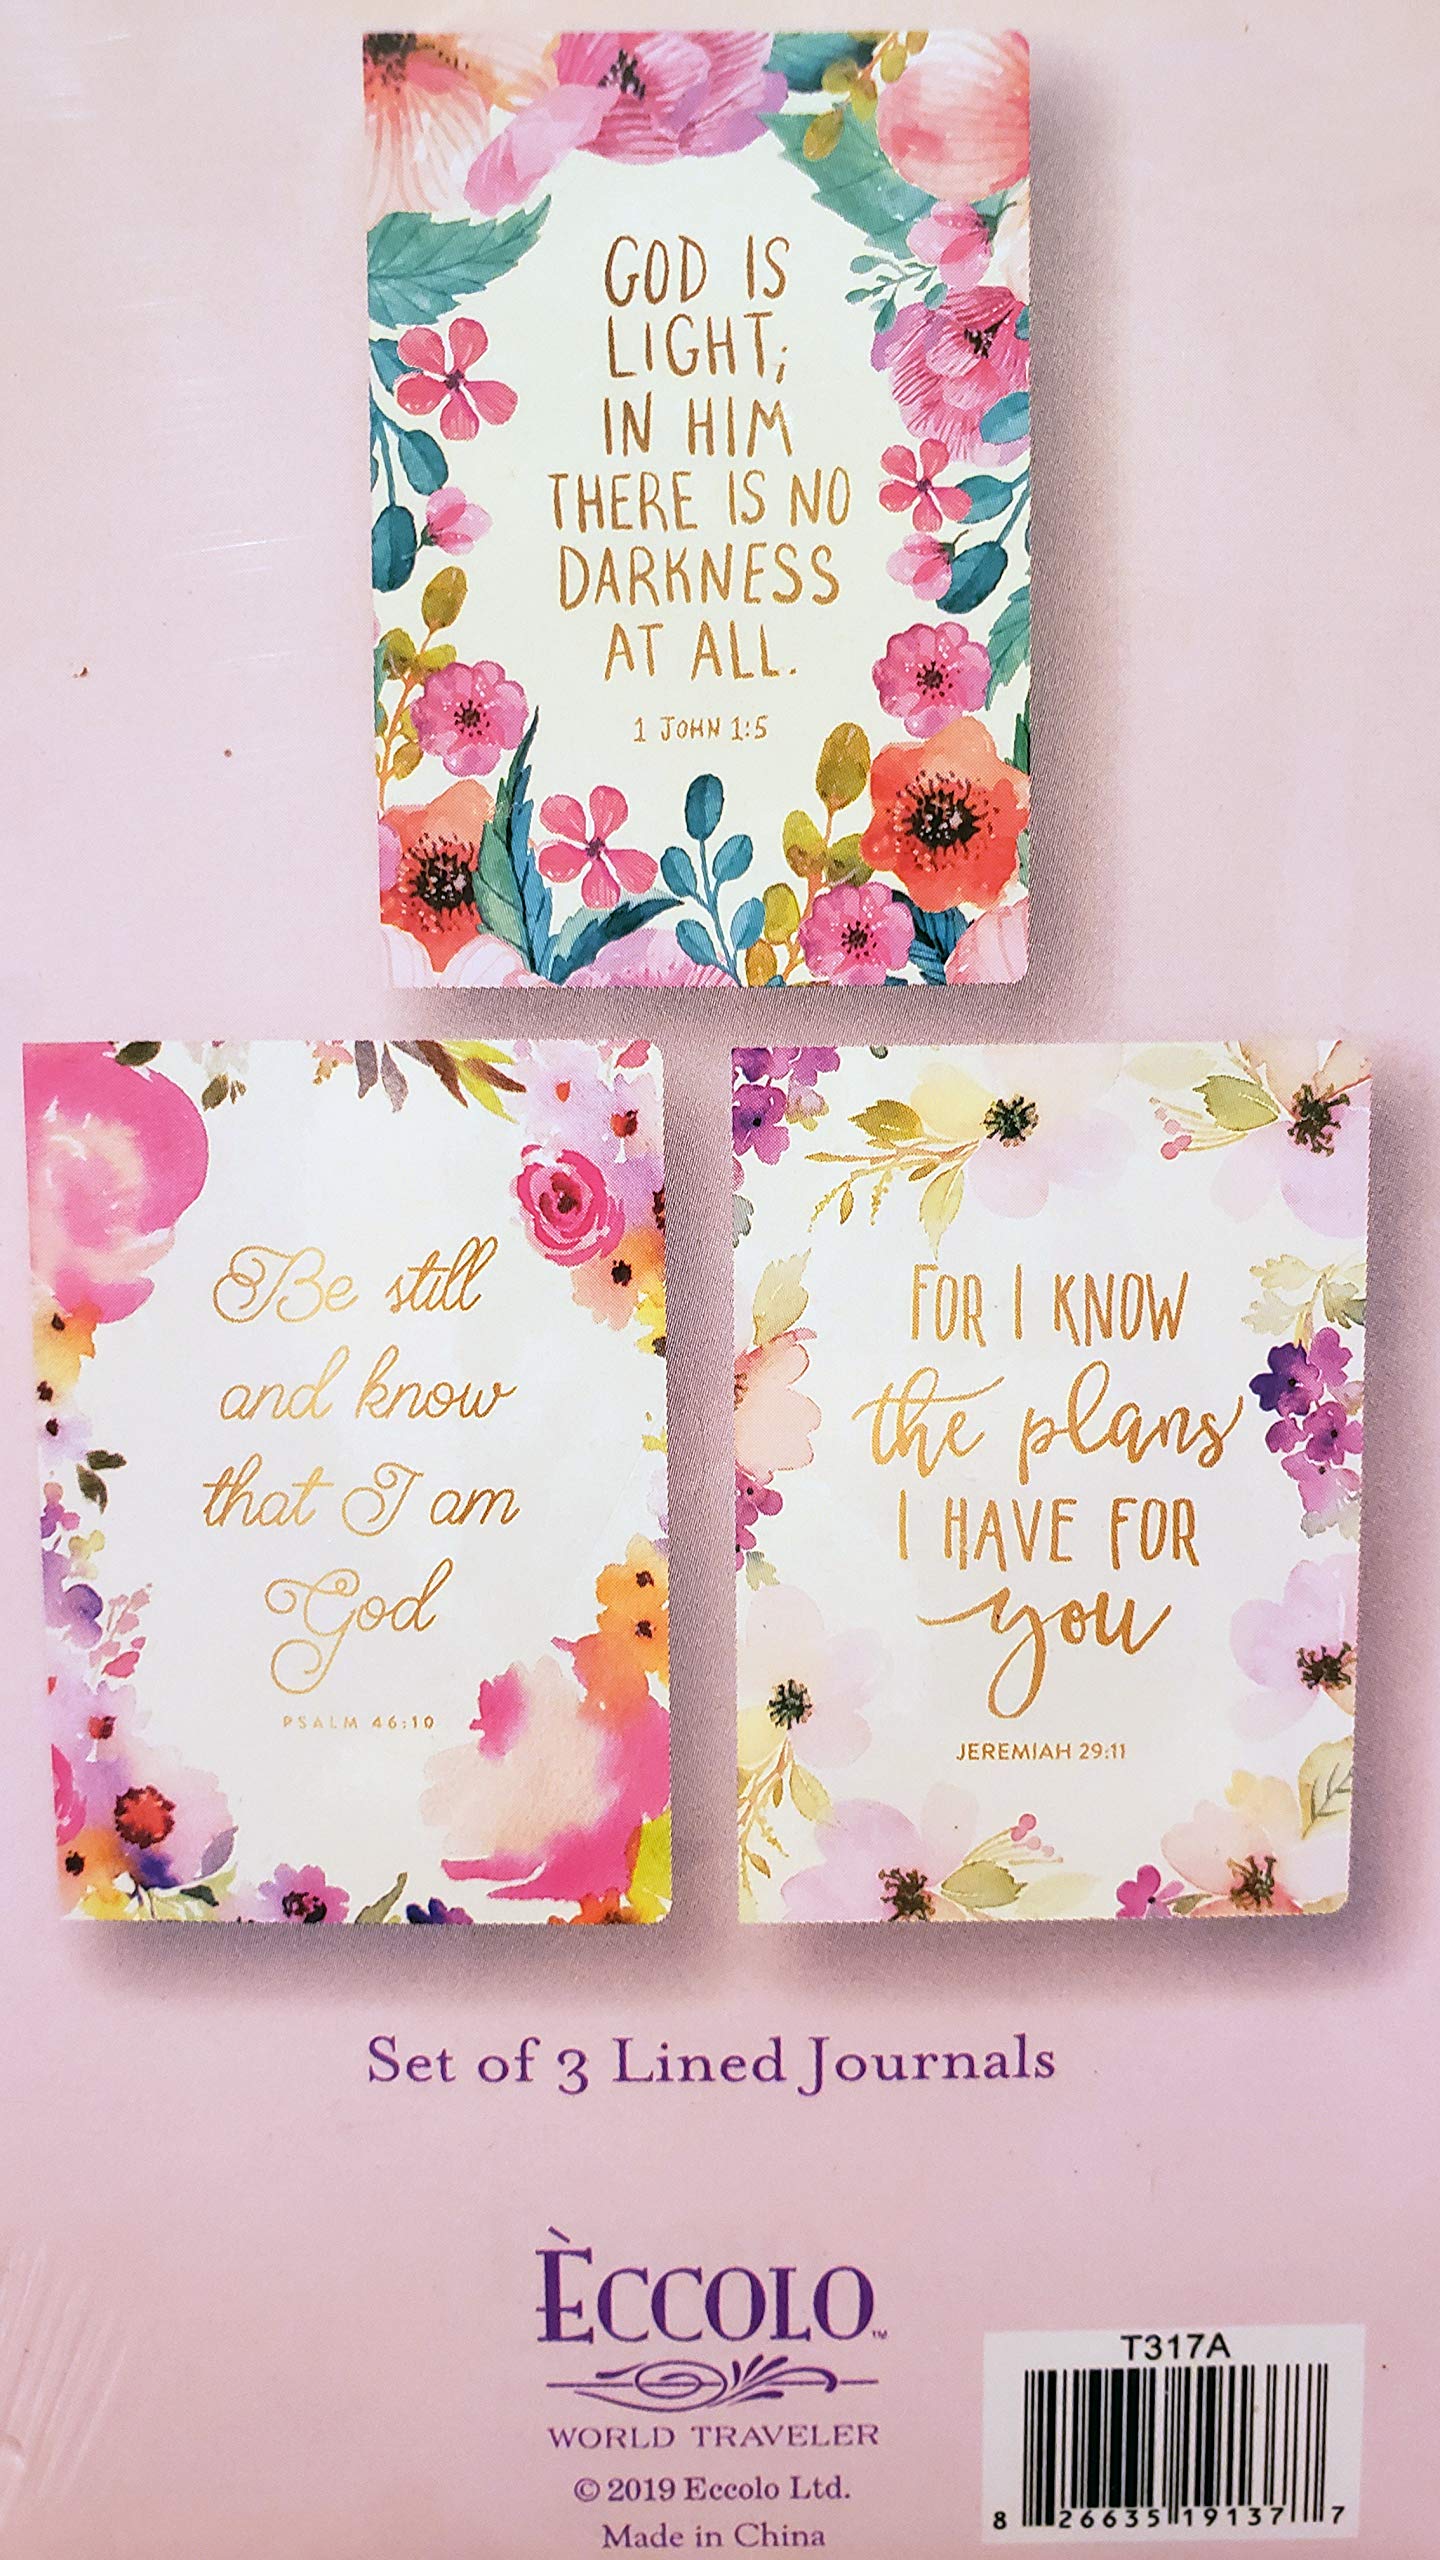 GOD IS
LIGHT;
IN HIM
THERE IS NO
DARKNESS
AT ALL.
1 JOHN 1:5
Be still
and know
that I am
God
PSALM 46:10
FOR I KNOW
the plans
I HAVE FOR
you
JEREMIAH 29:11
Set of 3 Lined Journals
ÈCCOLO™
WORLD TRAVELER
© 2019 Eccolo Ltd.
Made in China
T317A
8 26635 19137 7